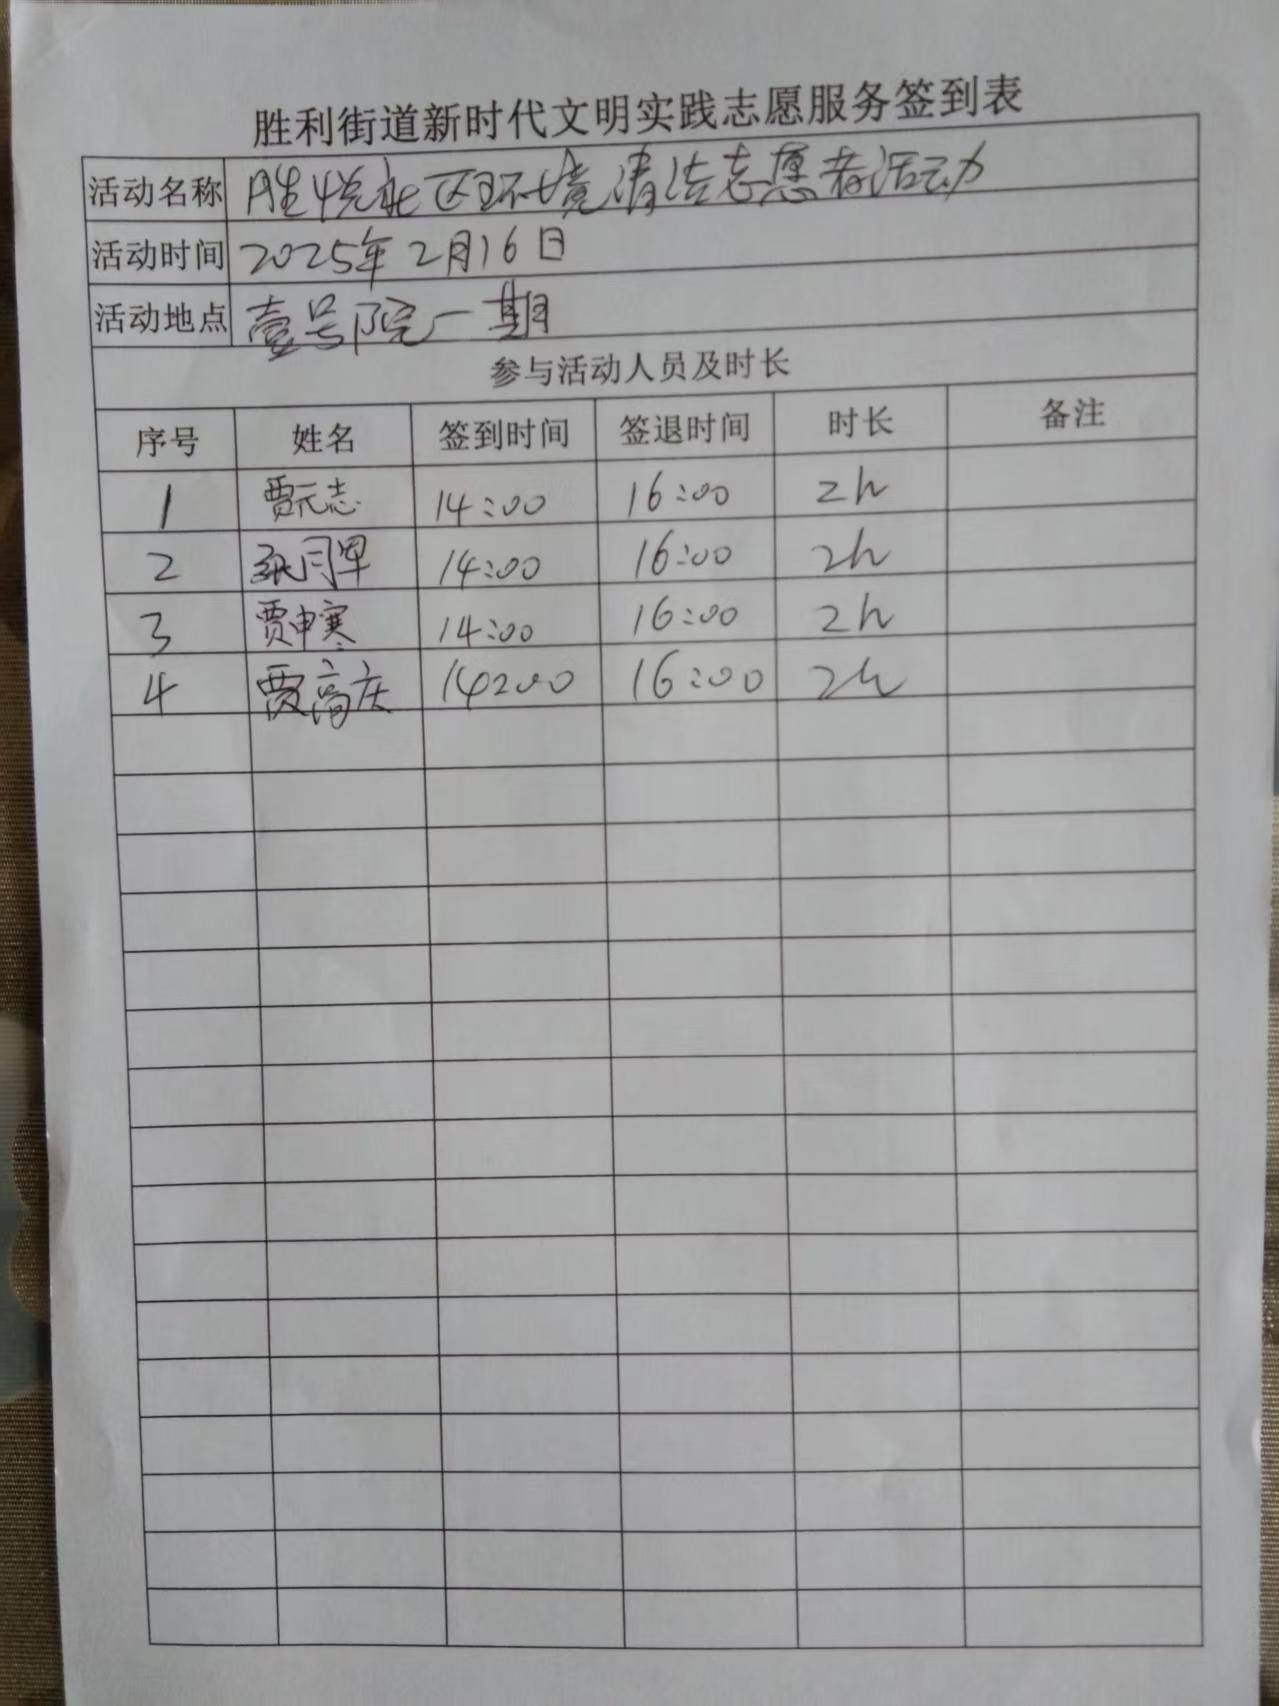 胜利街道新时代文明实践志愿服务签到表
活动名称 胜悦社区环境清洁志愿者活动
活动时间 2025年2月16日
活动地点 壹号院一期
参与活动人员及时长
序号 姓名 签到时间 签退时间 时长 备注
1 贾元志 14:00 16:00 2h
2 14:00 16:00 2h
3 贾申寒 14:00 16:00 2h
4 贾高庆 14:00 16:00 2h